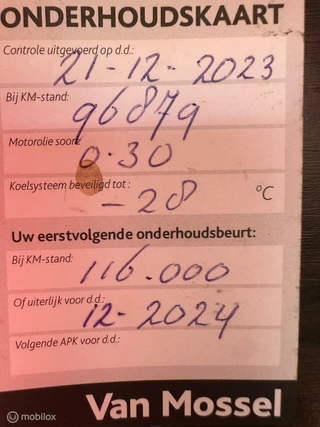 ONDERHOUDSKAART
Controle uitgevoerd op d.d.: 21-12-2023
Bij KM-stand: 96879
Motorolie soort: 0.30
Koelsysteem beveiligd tot: -28 °C
Uw eerstvolgende onderhoudsbeurt:
Bij KM-stand: 116.000
Of uiterlijk voor d.d.: 12-2024
Volgende APK voor d.d.:
Van Mossel
mobilox